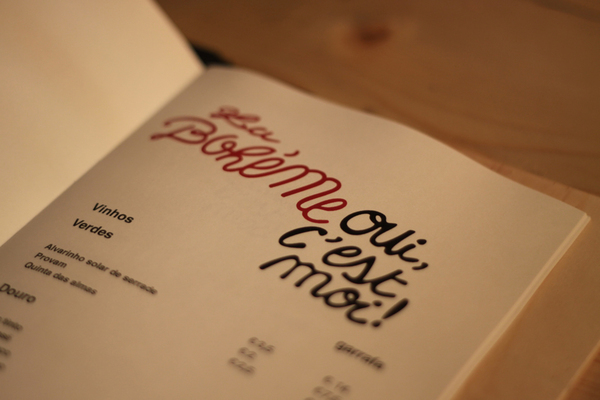 La
Bohéme oui,
c'est
moi!
Vinhos
Verdes
Alvarinho solar de serrade
Provam
Quinta das almas
Douro
garrafa